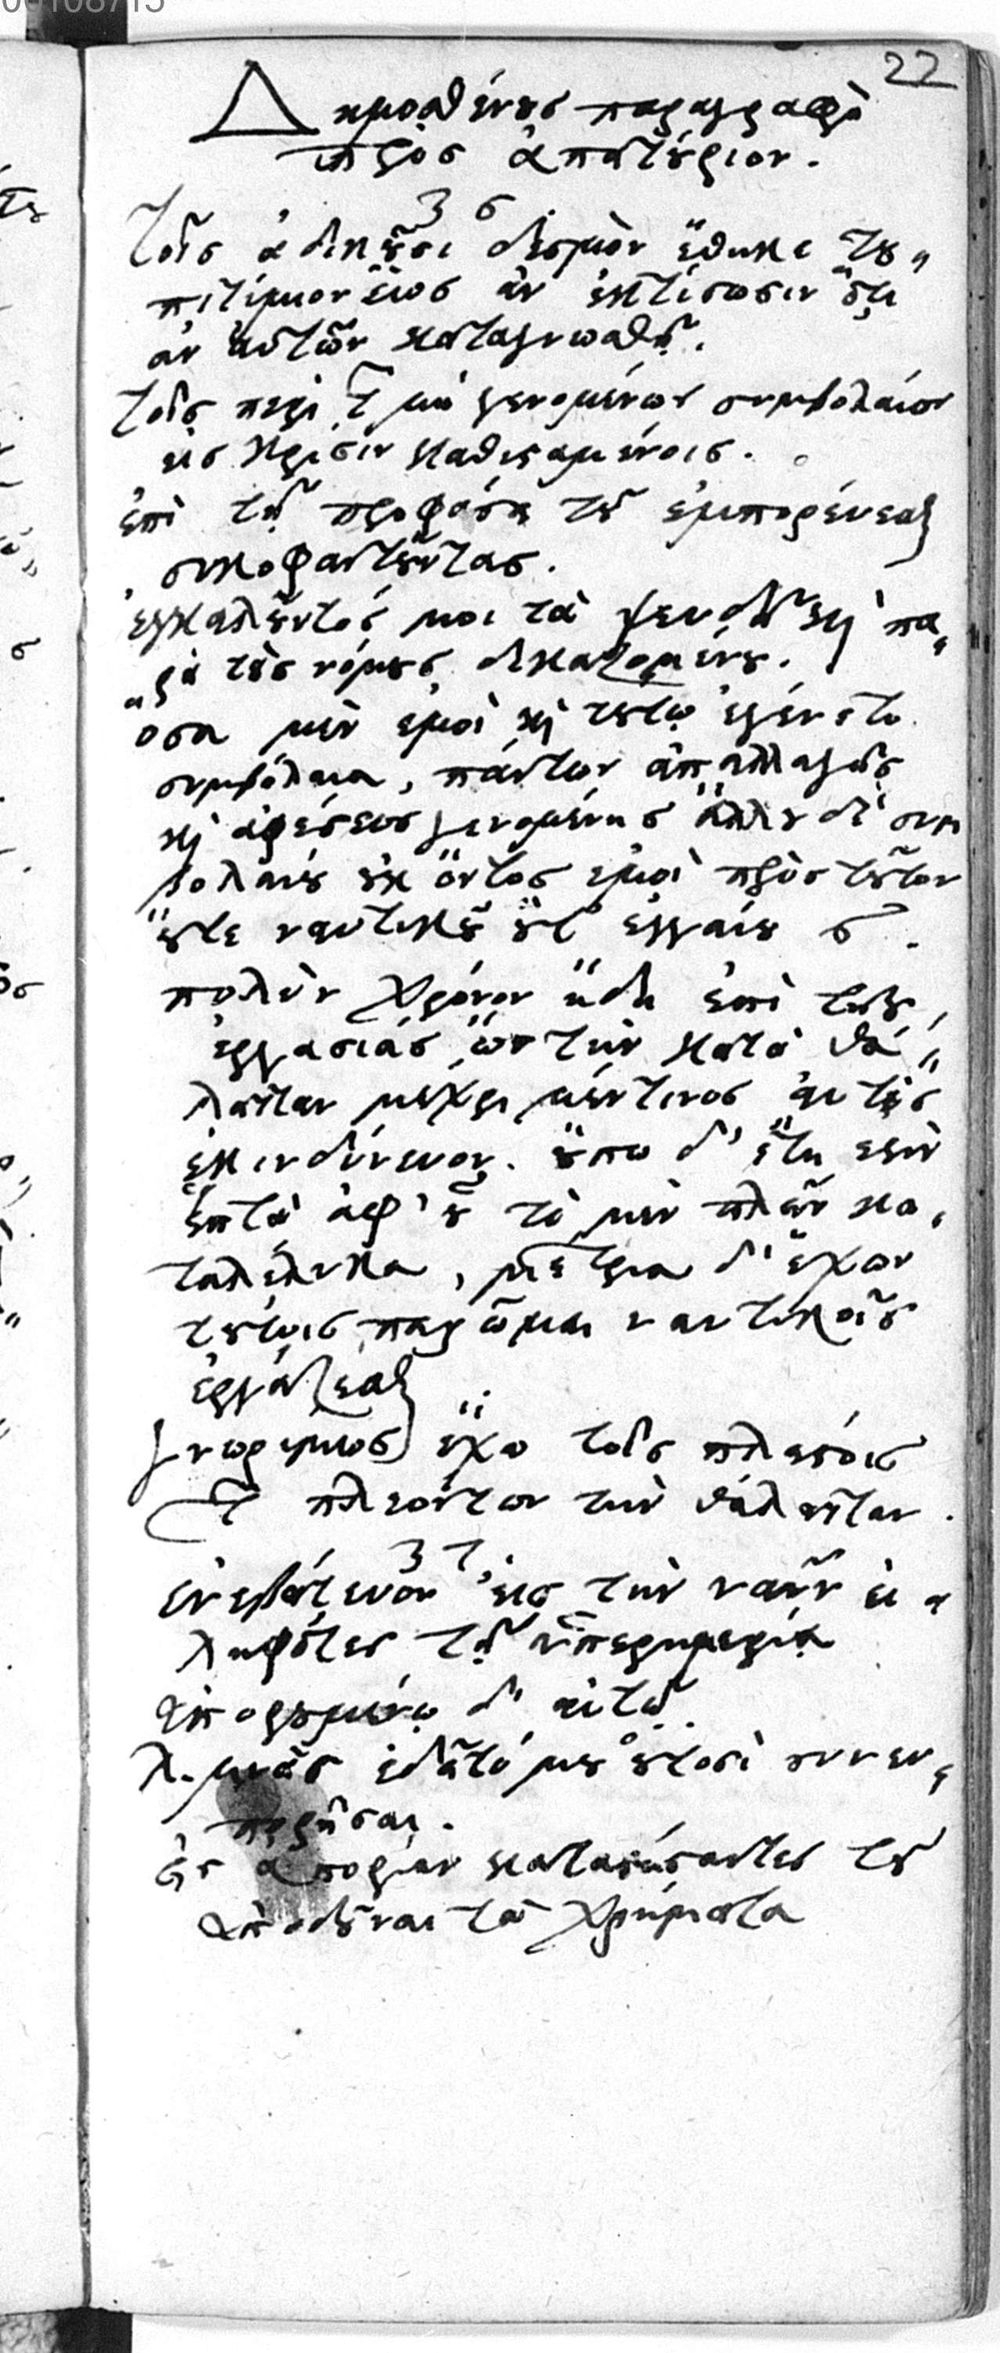 00108715
22
Δημοσθένους παραγραφὴ
πρὸς ἀπατούριον.
36
τοῖς ἀδικοῦσι δεσμὸν ἔθηκε τοὐ〃
πιτίμιον ἕως ἂν ἐκτίσωσιν ὅτι
ἂν αὐτῶν καταγνωσθῇ.
τοῖς περὶ τῶν μὴ γενομένων συμβολαίων
εἰς κρίσιν καθισταμένοις.
ἐπὶ τῇ προφάσει τοῦ ἐμπορεύεσθαι
συκοφαντοῦντας.
ἐγκαλοῦντός μοι τὰ ψευδῆ καὶ πα〃
〃ρὰ τοὺς νόμους δικαζομένου.
ὅσα μὲν ἐμοὶ καὶ τούτῳ ἐγένετο
συμβόλαια, πάντων ἀπαλλαγῆς
καὶ ἀφέσεως γενομένης ἄλλου δὲ συμ
βολαίου οὐκ ὄντος ἐμοὶ πρὸς τοῦτον
οὔτε ναυτικοῦ οὔτ' ἐγγαίου
πολὺν χρόνον ἤδη ἐπὶ τῆς
ἐργασίας ὢν τῆς κατὰ θά〃
λατταν μέχρι μέν τινος αὐτὸς
ἐκινδύνευον. οὔπω δ' ἔτη ἐστὶν
ἑπτὰ ἀφ' οὗ τὸ μὲν πλεῖν κα〃
ταλέλυκα, μέτρια δ' ἔχων
τούτοις πειρῶμαι ναυτικοῖς
ἐργάζεσθαι
γνωρίμως ἔχω τοῖς πλείστοις
τῶν πλεόντων τὴν θάλατταν.
37
ἐνεβάτευον εἰς τὴν ναῦν εἰ〃
ληφότες τῇ ὑπερημερίᾳ
ἀπορουμένῳ δ' αὐτῷ
λ. μνᾶς ἐδεῖτό μου οὑτοσὶ συνευ〃
πορῆσαι.
εἰς ἀπορίαν καταστήσαντες τοῦ
ἀποδοῦναι τὰ χρήματα